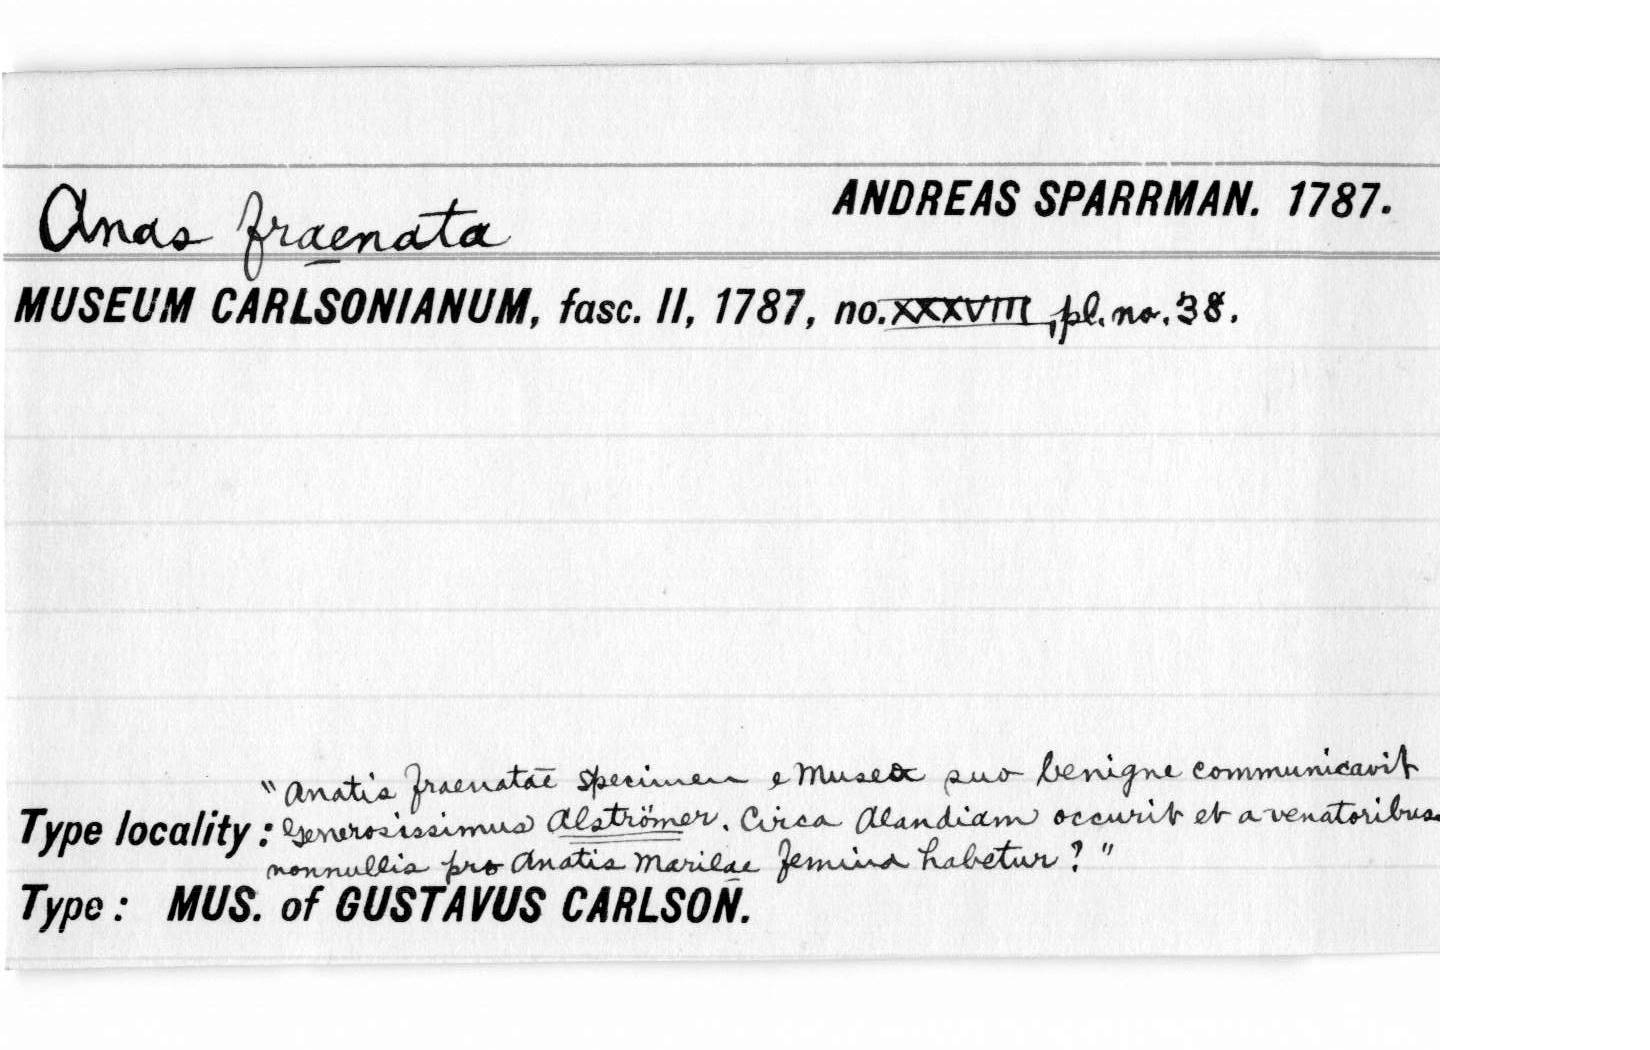 Anas fraenata ANDREAS SPARRMAN. 1787.
MUSEUM CARLSONIANUM, fasc. II, 1787, no. XXXVIII, pl. no. 38.
"Anatis fraenatae specimen e Museo suo benigne communicavit
Type locality: Generosissimus Alströmer. Circa Alandiam occurit et a venatoribus
nonnullis pro Anatis Marilae femina habetur?"
Type: MUS. of GUSTAVUS CARLSON.